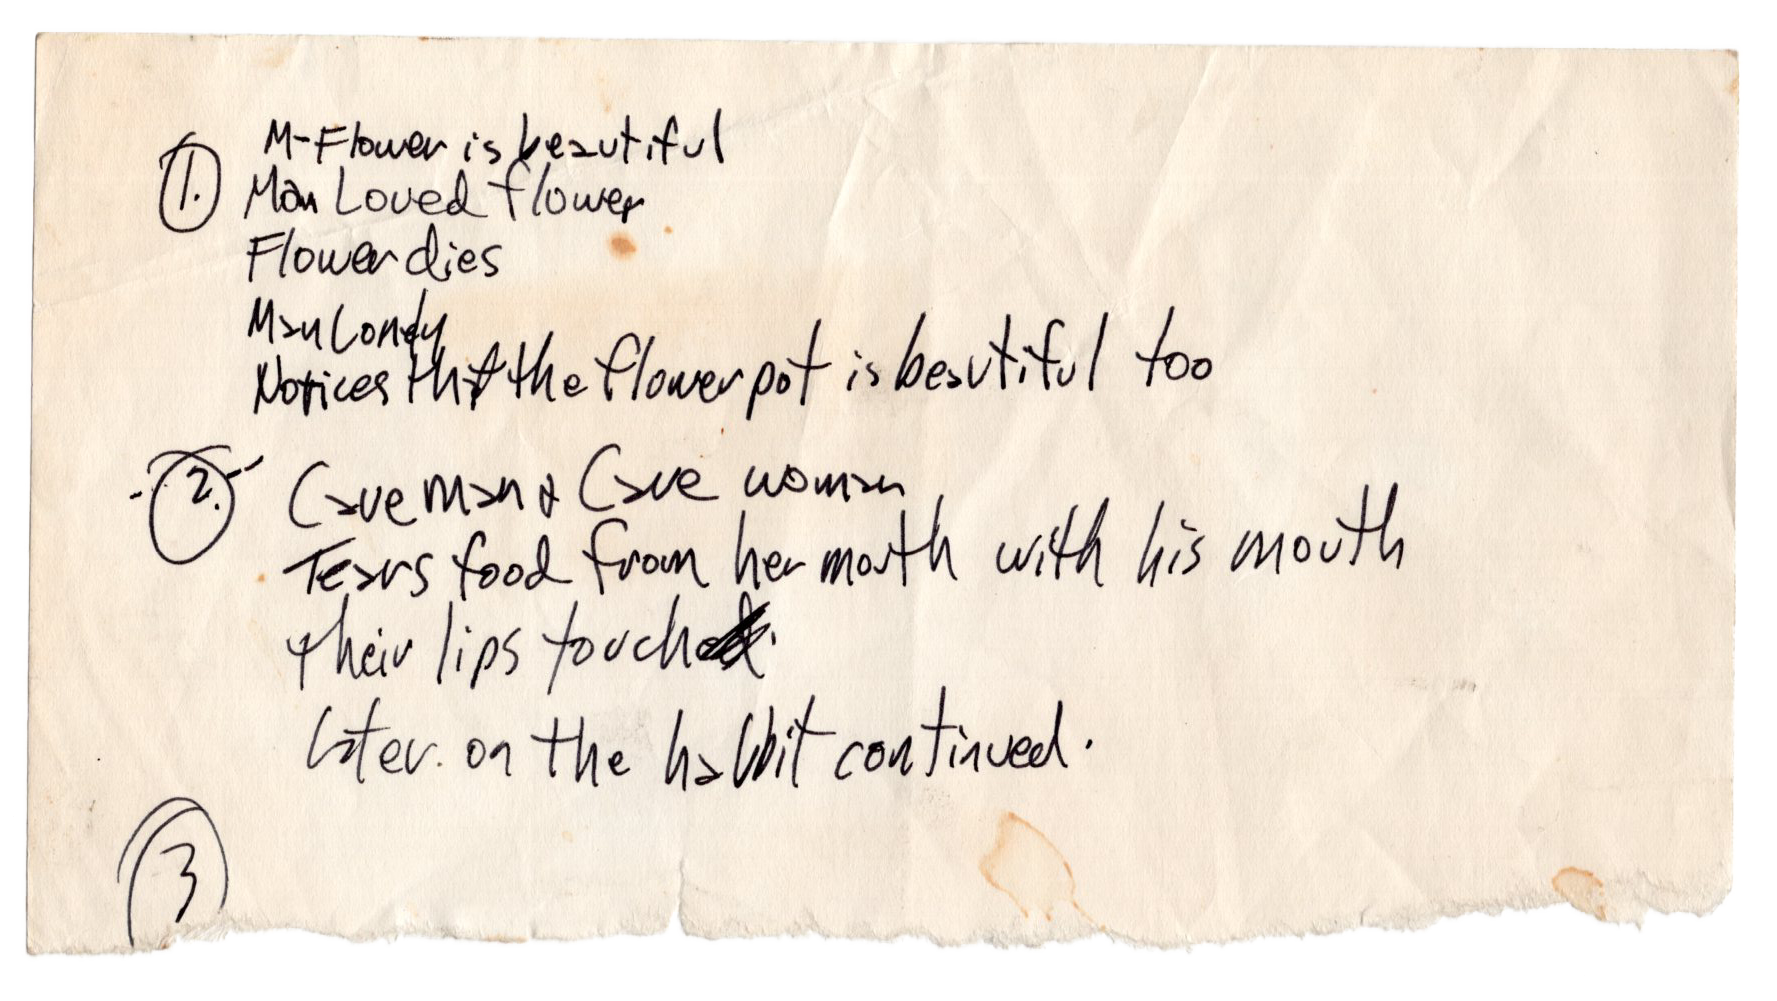 M-Flower is beautiful
1. Man Loved flower
Flower dies
Man Lonely
Notices that the flower pot is beautiful too
2. Cave man & Cave woman
Tears food from her mouth with his mouth
their lips touch
Later on the habbit continued.
3